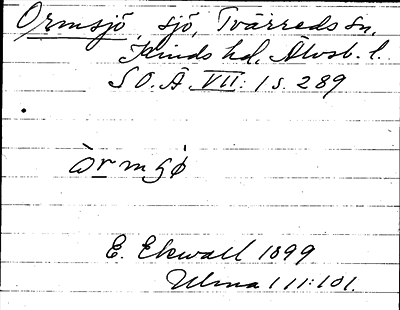 Ormsjö, sjö, Tvärreds sn,
Kinds hd, Älvsb. l.
S O. Ä VII: 1 s. 289
òrmʂø̀
E. Ekwall 1899
Ulma 111:101.